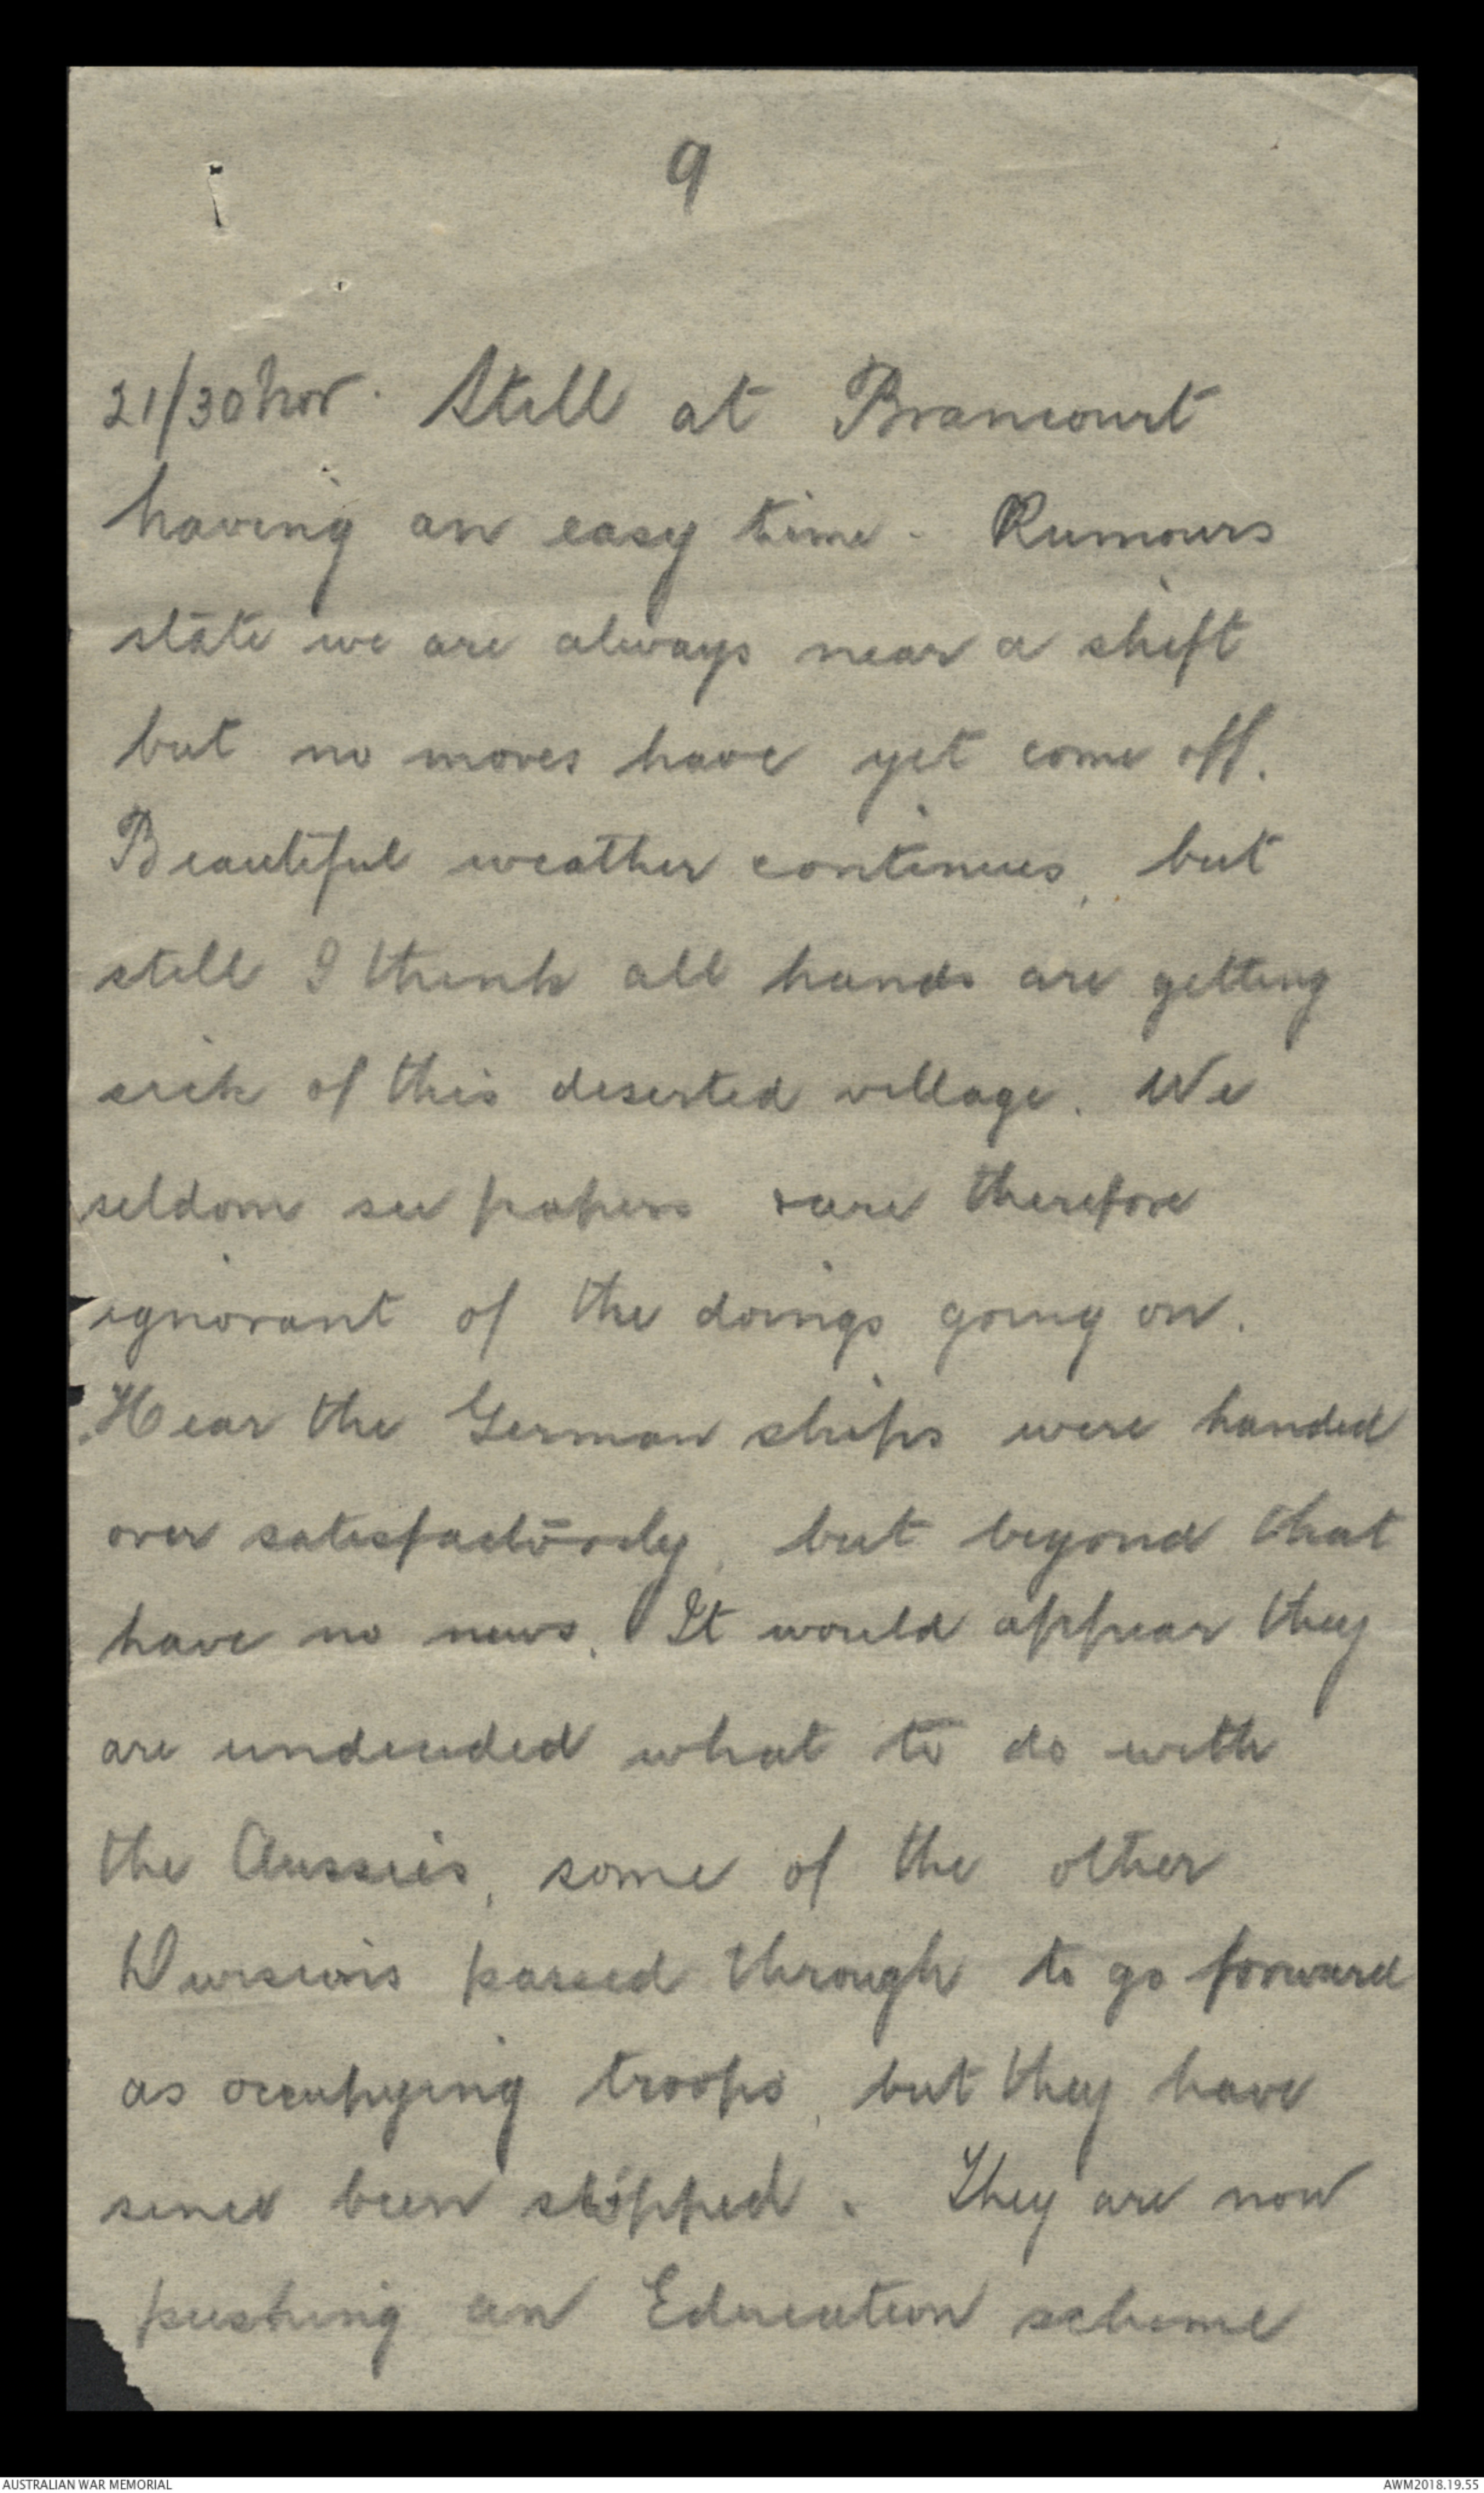 9
21/30 Nov. Still at Brancourt
having an easy time. Rumours
state we are always near a shift
but no moves have yet come off.
Beautiful weather continues, but
still I think all hands are getting
sick of this deserted village. We
seldom see papers & are therefore
ignorant of the doings going on.
Hear the German ships were handed
over satisfactorily, but beyond that
have no news. It would appear they
are undecided what to do with
the Aussies, some of the other
Divisions passed through to go forward
as occupying troops, but they have
since been stopped. They are now
pushing an Education scheme
AUSTRALIAN WAR MEMORIAL
AWM2018.19.55